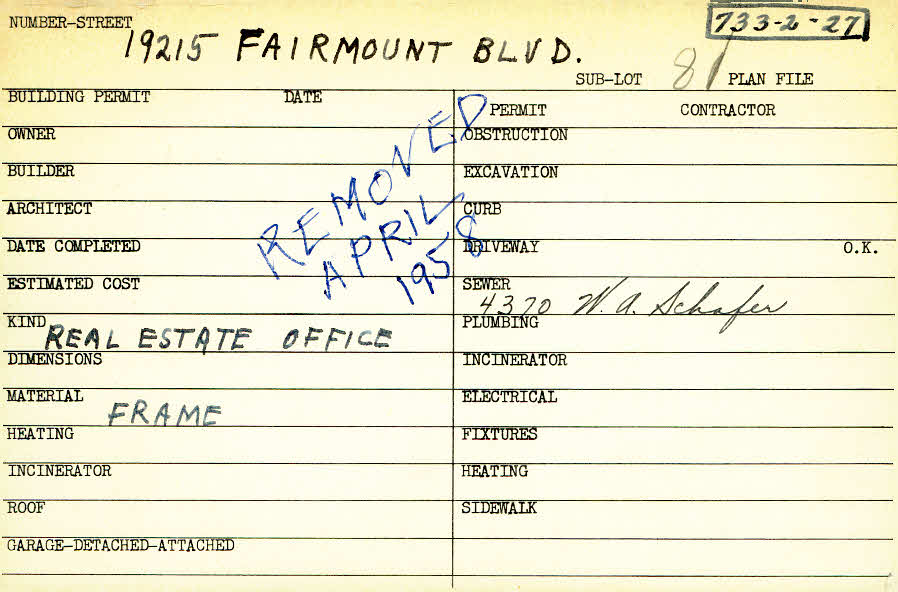 NUMBER-STREET
733-2-27
19215 FAIRMOUNT BLVD.
SUB-LOT 81 PLAN FILE
BUILDING PERMIT DATE
PERMIT CONTRACTOR
OWNER
OBSTRUCTION
BUILDER
EXCAVATION
ARCHITECT
CURB
DATE COMPLETED
DRIVEWAY O.K.
ESTIMATED COST
SEWER
4370 W. A. Schafer
KIND REAL ESTATE OFFICE
PLUMBING
DIMENSIONS
INCINERATOR
MATERIAL FRAME
ELECTRICAL
HEATING
FIXTURES
INCINERATOR
HEATING
ROOF
SIDEWALK
GARAGE-DETACHED-ATTACHED
REMOVED
APRIL
1958